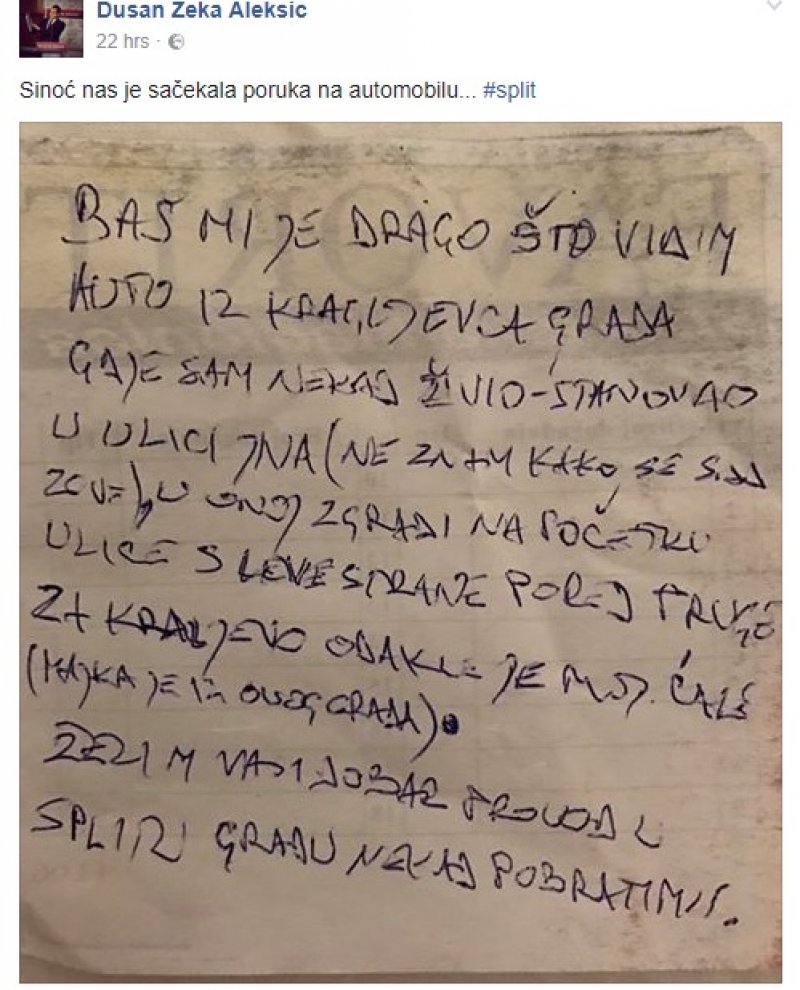 Dusan Zeka Aleksic
22 hrs ·
Sinoć nas je sačekala poruka na automobilu... #split
BAŠ MI JE DRAGO ŠTO VIDIM
AUTO IZ KRAGUJEVCA GRADA
GDJE SAM NEKAD ŽIVIO-STANOVAO
U ULICI JNA (NE ZNAM KAKO SE SAD
ZOVE), U ONOJ ZGRADI NA POČETKU
ULICE S LEVE STRANE PORED PRUGE
ZA KRALJEVO ODAKLE JE MOJ ĆALE
(MAJKA JE IZ OVOG GRADA).
ŽELIM VAM DOBAR PROVOD U
SPLITU GRADU NEKAD POBRATIMU.